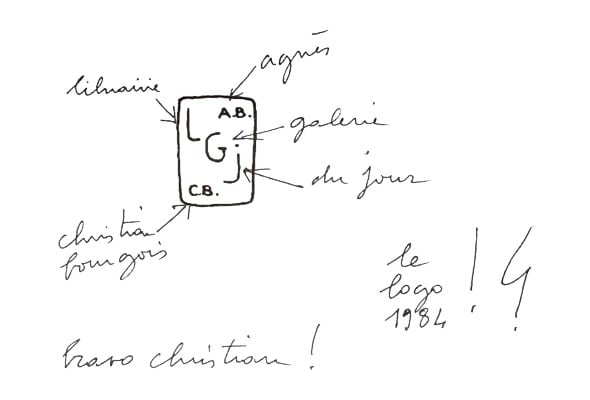 agnès
librairie
A.B.
L
galerie
G
j
du jour
C.B.
christian
bourgois
le
logo
1984 !
bravo christian !